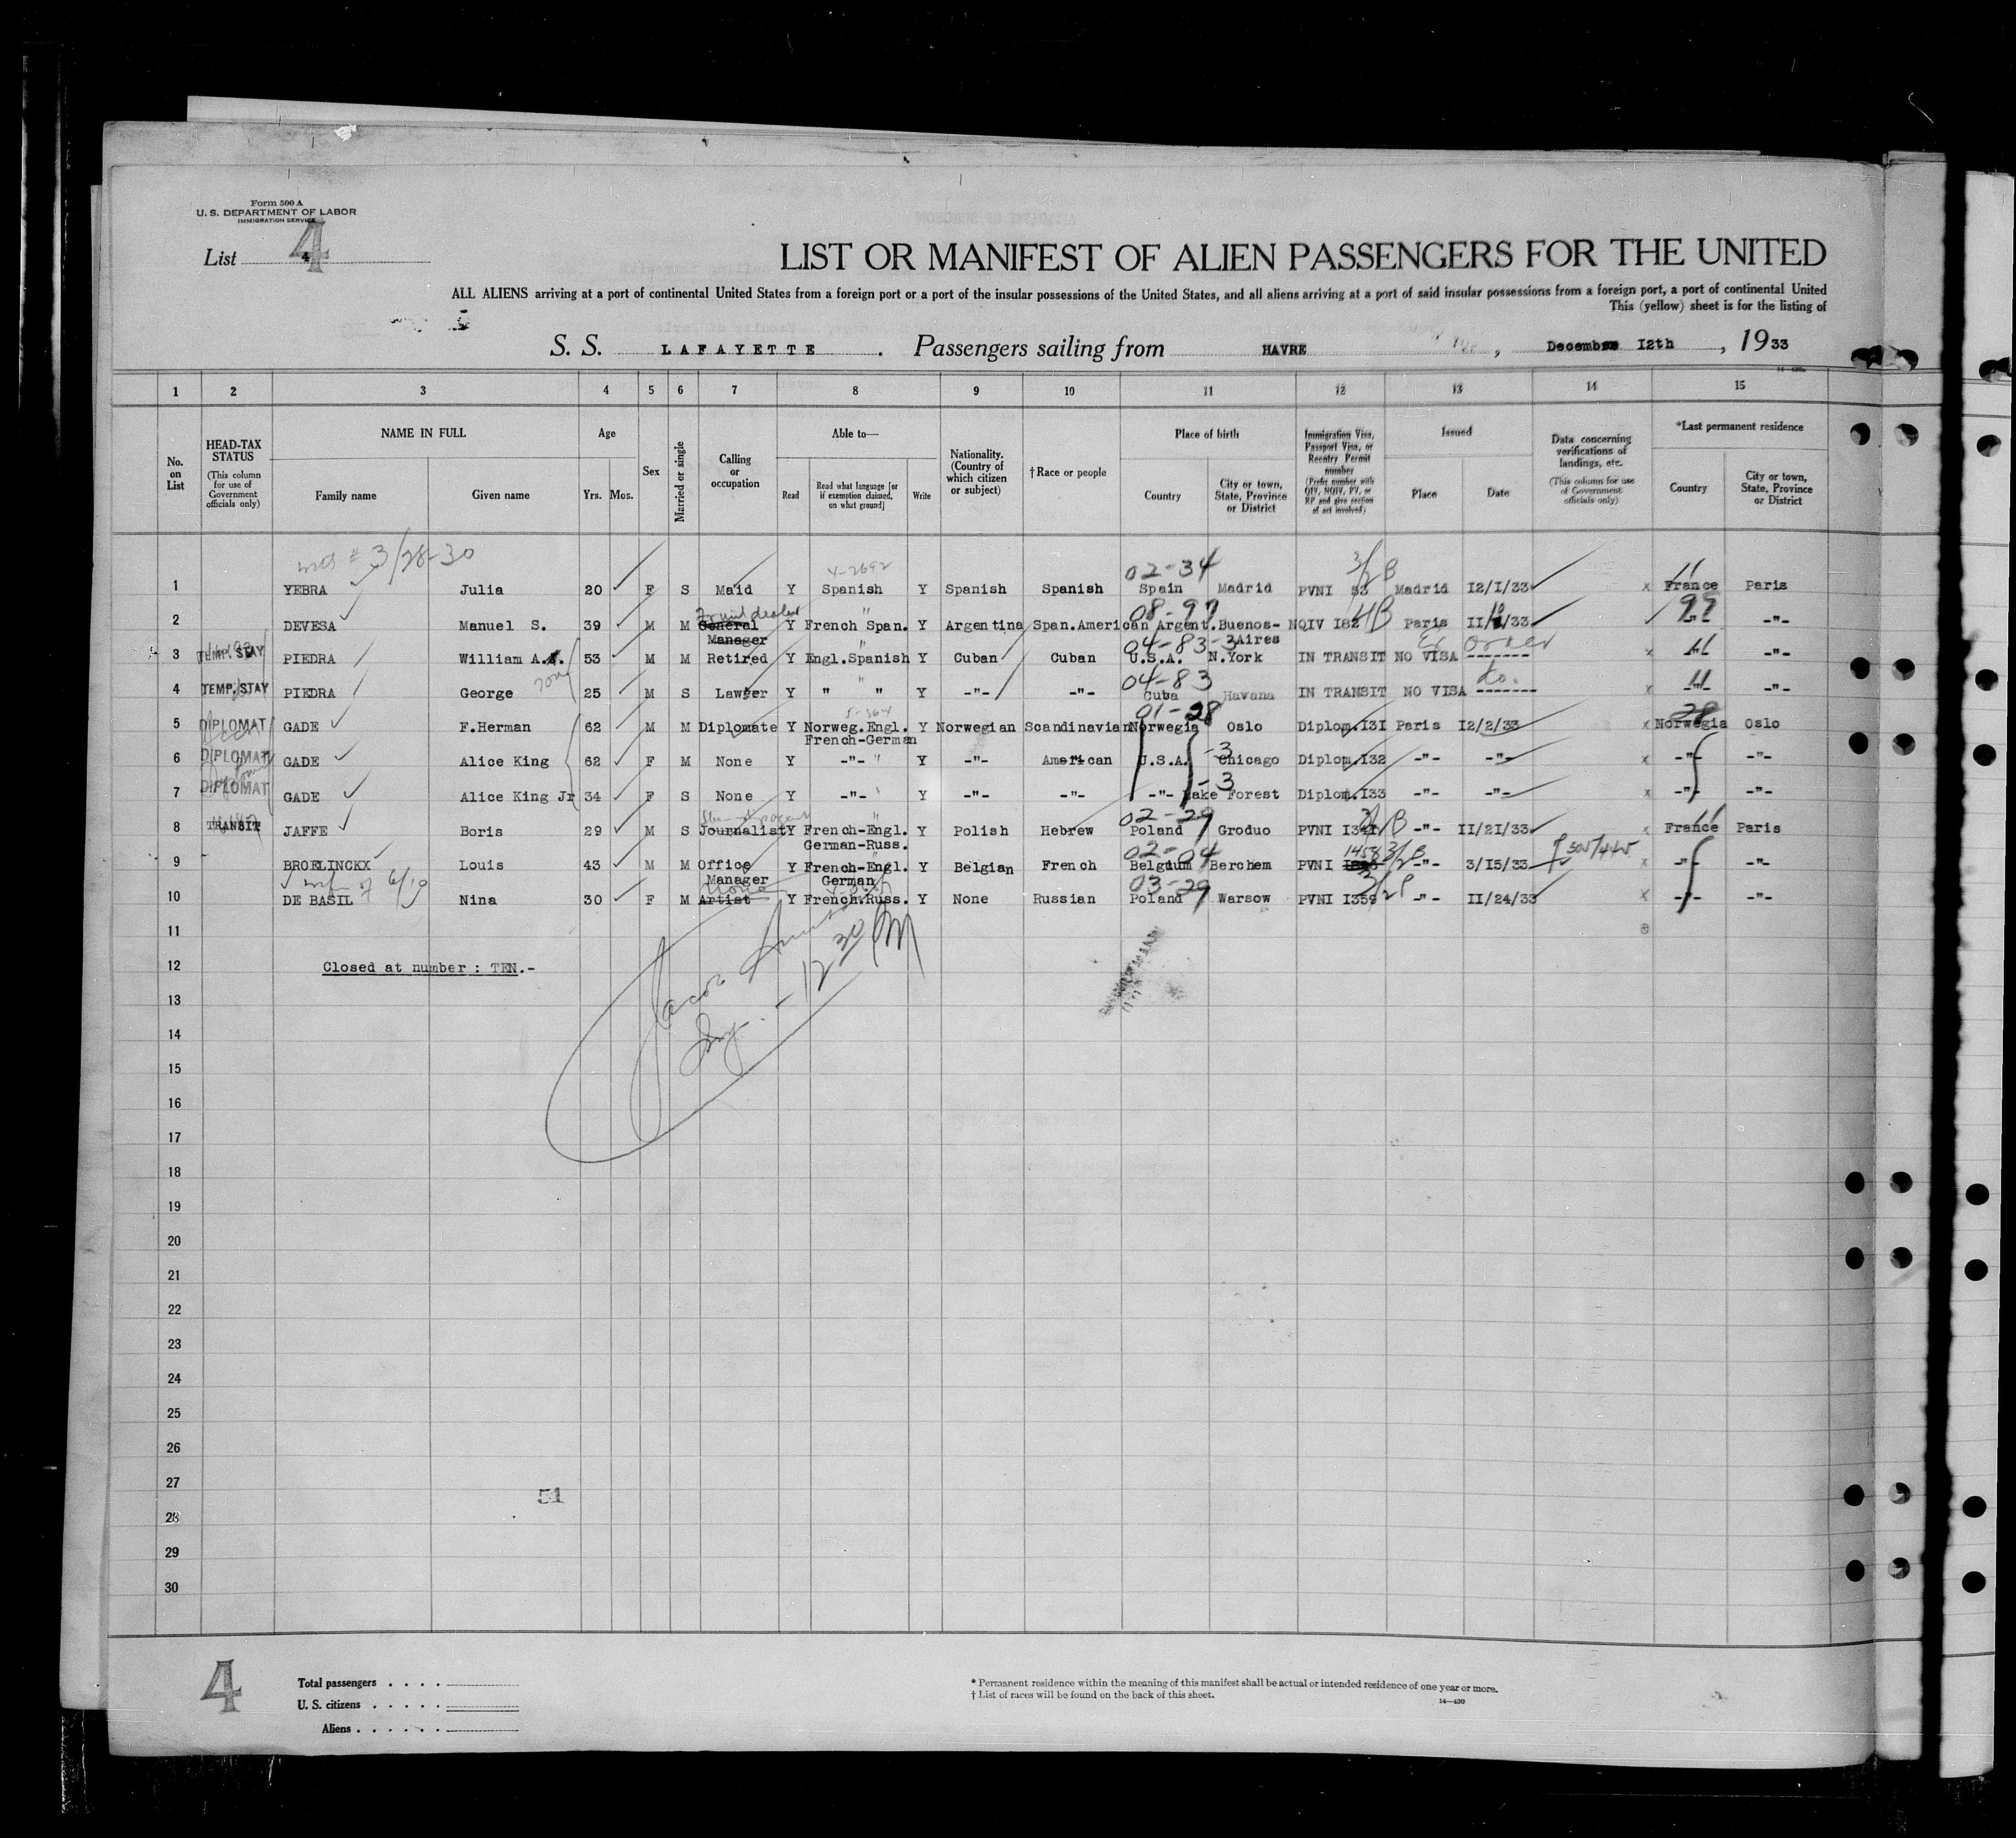 Form 500 A
U. S. DEPARTMENT OF LABOR
IMMIGRATION SERVICE
List 4
LIST OR MANIFEST OF ALIEN PASSENGERS FOR THE UNITED
ALL ALIENS arriving at a port of continental United States from a foreign port or a port of the insular possessions of the United States, and all aliens arriving at a port of said insular possessions from a foreign port, a port of continental United
This (yellow) sheet is for the listing of
S. S. LAFAYETTE . Passengers sailing from HAVRE , December 12th , 1933
1 2 3 4 5 6 7 8 9 10 11 12 13 14 15
No. on List
HEAD-TAX STATUS
(This column for use of Government officials only)
NAME IN FULL
Family name
Given name
Age
Yrs. Mos.
Sex
Married or single
Calling or occupation
Able to—
Read
Read what language [or if exemption claimed, on what ground]
Write
Nationality. (Country of which citizen or subject)
†Race or people
Place of birth
Country
City or town, State, Province or District
Immigration Visa, Passport Visa, or Reentry Permit number
(Prefix number with QIV, NQIV, PV, or RP and give section of act involved)
Issued
Place
Date
Data concerning verifications of landings, etc.
(This column for use of Government officials only)
*Last permanent residence
Country
City or town, State, Province or District
3/28-30
4-2692 02-34 3/2 B 11
1 YEBRA Julia 20 F S Maid Y Spanish Y Spanish Spanish Spain Madrid PVNI 53 Madrid I2/I/33 x France Paris
Fruit dealer 08-97 99
2 DEVESA Manuel S. 39 M M General Manager Y French Span. Y Argentina Span.American Argent. Buenos-Aires NQIV I82 Paris II/ /33 -"- -"-
04-83-3 11
3 TEMP. STAY PIEDRA William A. 53 M M Retired Y Engl.Spanish Y Cuban Cuban U.S.A. N.York IN TRANSIT NO VISA ------- x -"- -"-
04-83 do. 11
4 TEMP. STAY PIEDRA George 25 M S Lawyer Y " " Y -"- -"- Cuba Havana IN TRANSIT NO VISA ------- x -"- -"-
5-364 01-28 28
5 DIPLOMAT GADE F.Herman 62 M M Diplomate Y Norweg.Engl. French-German Y Norwegian Scandinavian Norwegia Oslo Diplom.I3I Paris I2/2/33 x Norwegia Oslo
-3
6 DIPLOMAT GADE Alice King 62 F M None Y -"- Y -"- American U.S.A. Chicago Diplom.I32 -"- -"- x -"- -"-
-3
7 DIPLOMAT GADE Alice King Jr 34 F S None Y -"- Y -"- -"- -"- Lake Forest Diplom.I33 -"- -"- x -"- -"-
02-29 11
8 TRANSIT JAFFE Boris 29 M S Journalist Y French-Engl. German-Russ. Y Polish Hebrew Poland Groduo PVNI -"- II/2I/33 x France Paris
02-04 1458 3/2 B
9 BROELINCKX Louis 43 M M Office Manager Y French-Engl. German Y Belgian French Belgium Berchem PVNI -"- 3/I5/33 x -"- -"-
6/10 03-29
10 DE BASIL Nina 30 F M Artist Y French.Russ. Y None Russian Poland Warsow PVNI I359 -"- II/24/33 x -"- -"-
11
12 Closed at number : TEN.-
Jacob
12 30 PM
13
14
15
16
17
18
19
20
21
22
23
24
25
26
27
51
28
29
30
4
Total passengers
U. S. citizens
Aliens
* Permanent residence within the meaning of this manifest shall be actual or intended residence of one year or more.
† List of races will be found on the back of this sheet.
14—430